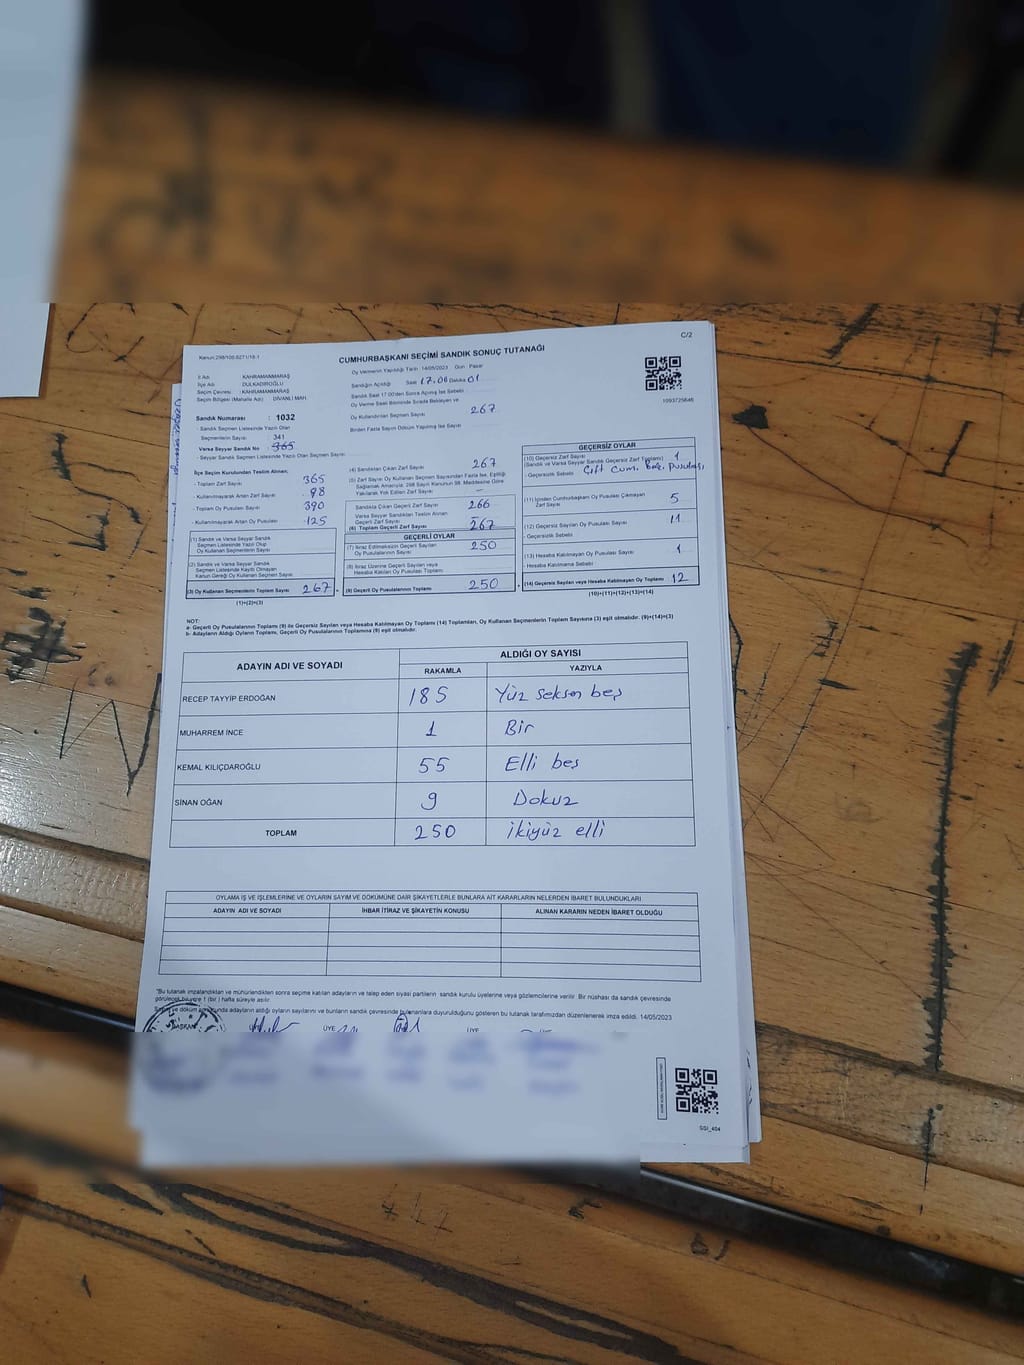 C/2
Kanun:298/105.6271/16.1
CUMHURBAŞKANI SEÇİMİ SANDIK SONUÇ TUTANAĞI
İl Adı : KAHRAMANMARAŞ
İlçe Adı : DULKADİROĞLU
Seçim Çevresi : KAHRAMANMARAŞ
Seçim Bölgesi (Mahalle Adı) : DİVANLI MAH.
Sandık Numarası : 1032
- Sandık Seçmen Listesinde Yazılı Olan
Seçmenlerin Sayısı : 341
Varsa Seyyar Sandık No : 365
- Seyyar Sandık Seçmen Listesinde Yazılı Olan Seçmen Sayısı:
Oy Vermenin Yapıldığı Tarih 14/05/2023 Gün Pazar
Sandığın Açıldığı Saat 17.00 Dakika 01
Sandık Saat 17:00'den Sonra Açılmış İse Sebebi
Oy Verme Saati Bitiminde Sırada Bekleyen ve
Oy Kullandırılan Seçmen Sayısı 267
Birden Fazla Sayım Döküm Yapılmış İse Sayısı
1093725646
İlçe Seçim Kurulundan Teslim Alınan;
- Toplam Zarf Sayısı 365
- Kullanılmayarak Artan Zarf Sayısı 98
- Toplam Oy Pusulası Sayısı 390
- Kullanılmayarak Artan Oy Pusulası 125
(1) Sandık ve Varsa Seyyar Sandık
Seçmen Listesinde Yazılı Olup
Oy Kullanan Seçmenlerin Sayısı
(2) Sandık ve Varsa Seyyar Sandık
Seçmen Listesinde Kayıtlı Olmayan
Kanun Gereği Oy Kullanan Seçmenlerin Sayısı
(3) Oy Kullanan Seçmenlerin Toplam Sayısı 267
(1)+(2)=(3)
(4) Sandıktan Çıkan Zarf Sayısı 267
(5) Zarf Sayısı Oy Kullanan Seçmen Sayısından Fazla İse, Eşitliği
Sağlamak Amacıyla; 298 Sayılı Kanunun 98. Maddesine Göre
Yakılarak Yok Edilen Zarf Sayısı
Sandıkta Çıkan Geçerli Zarf Sayısı 266
Varsa Seyyar Sandıktan Teslim Alınan
Geçerli Zarf Sayısı
(6) Toplam Geçerli Zarf Sayısı 267
GEÇERLİ OYLAR
(7) İtiraz Edilmeksizin Geçerli Sayılan
Oy Pusulalarının Sayısı 250
(8) İtiraz Üzerine Geçerli Sayılan veya
Hesaba Katılan Oy Pusulası Toplamı
(9) Geçerli Oy Pusulalarının Toplamı 250
GEÇERSİZ OYLAR
(10) Geçersiz Zarf Sayısı 1
(Sandık ve Varsa Seyyar Sandık Geçersiz Zarf Toplamı)
- Geçersizlik Sebebi Çift Cum. Bşk. Pusulası
(11) İçinden Cumhurbaşkanı Oy Pusulası Çıkmayan
Zarf Sayısı 5
(12) Geçersiz Sayılan Oy Pusulası Sayısı 11
- Geçersizlik Sebebi
(13) Hesaba Katılmayan Oy Pusulası Sayısı 1
- Hesaba Katılmama Sebebi
(14) Geçersiz Sayılan veya Hesaba Katılmayan Oy Toplamı 12
(10)+(11)+(12)+(13)=(14)
NOT:
a- Geçerli Oy Pusulalarının Toplamı (9) ile Geçersiz Sayılan veya Hesaba Katılmayan Oy Toplamı (14) Toplamları, Oy Kullanan Seçmenlerin Toplam Sayısına (3) eşit olmalıdır. (9)+(14)=(3)
b- Adayların Aldığı Oyların Toplamı, Geçerli Oy Pusulalarının Toplamına (9) eşit olmalıdır.
ADAYIN ADI VE SOYADI
ALDIĞI OY SAYISI
RAKAMLA YAZIYLA
RECEP TAYYİP ERDOĞAN 185 Yüz seksen beş
MUHARREM İNCE 1 Bir
KEMAL KILIÇDAROĞLU 55 Elli beş
SİNAN OĞAN 9 Dokuz
TOPLAM 250 ikiyüz elli
OYLAMA İŞ VE İŞLEMLERİNE VE OYLARIN SAYIM VE DÖKÜMÜNE DAİR ŞİKAYETLERLE BUNLARA AİT KARARLARIN NELERDEN İBARET BULUNDUKLARI
ADAYIN ADI VE SOYADI İHBAR İTİRAZ VE ŞİKAYETİN KONUSU ALINAN KARARIN NEDEN İBARET OLDUĞU
"Bu tutanak imzalandıktan ve mühürlendikten sonra seçime katılan adayların ve talep eden siyasi partilerin sandık kurulu üyelerine veya gözlemcilerine verilir. Bir nüshası da sandık çevresinde
görülecek bir yere 1 (bir) hafta süreyle asılır.
Sayım ve döküm sonucunda adayların aldığı oyların sayılarını ve bunların sandık çevresinde bulunanlara duyurulduğunu gösteren bu tutanak tarafımızdan düzenlenerek imza edildi. 14/05/2023
BAŞKAN ÜYE ÜYE
SSİ_404